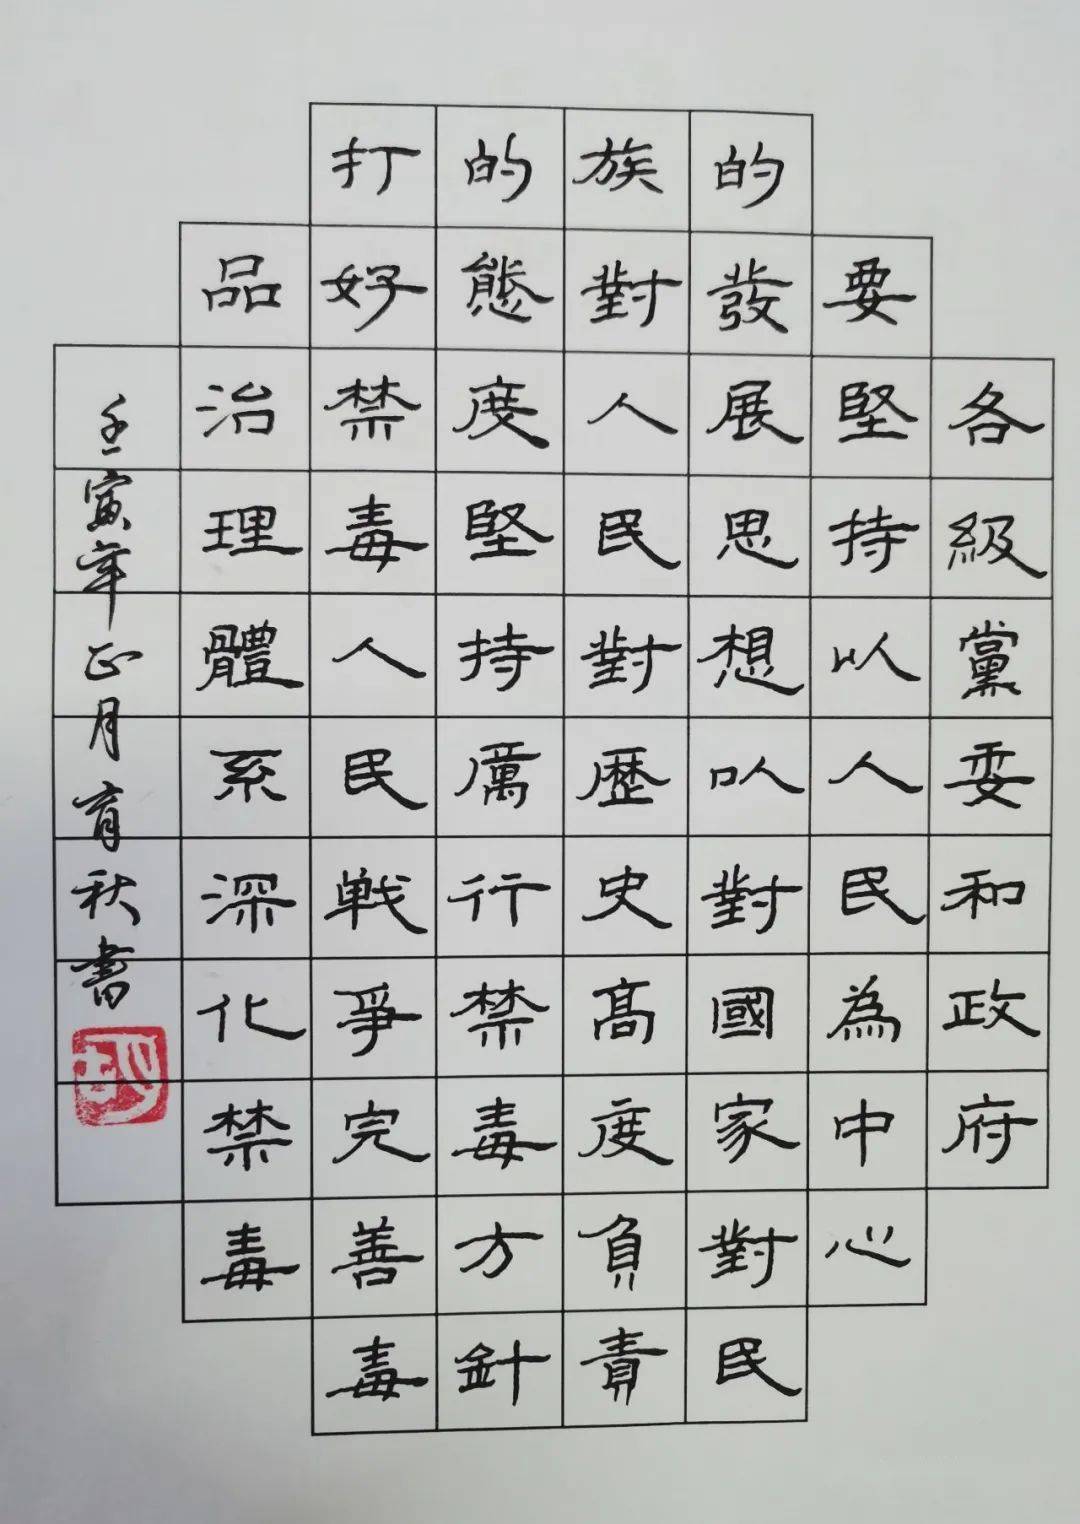 各級黨委和政府
要堅持以人民為中心
的發展思想以對國家對民
族對人民對歷史高度負責
的態度堅持厲行禁毒方針
打好禁毒人民戦爭完善毒
品治理體系深化禁毒
壬寅年正月育秋書